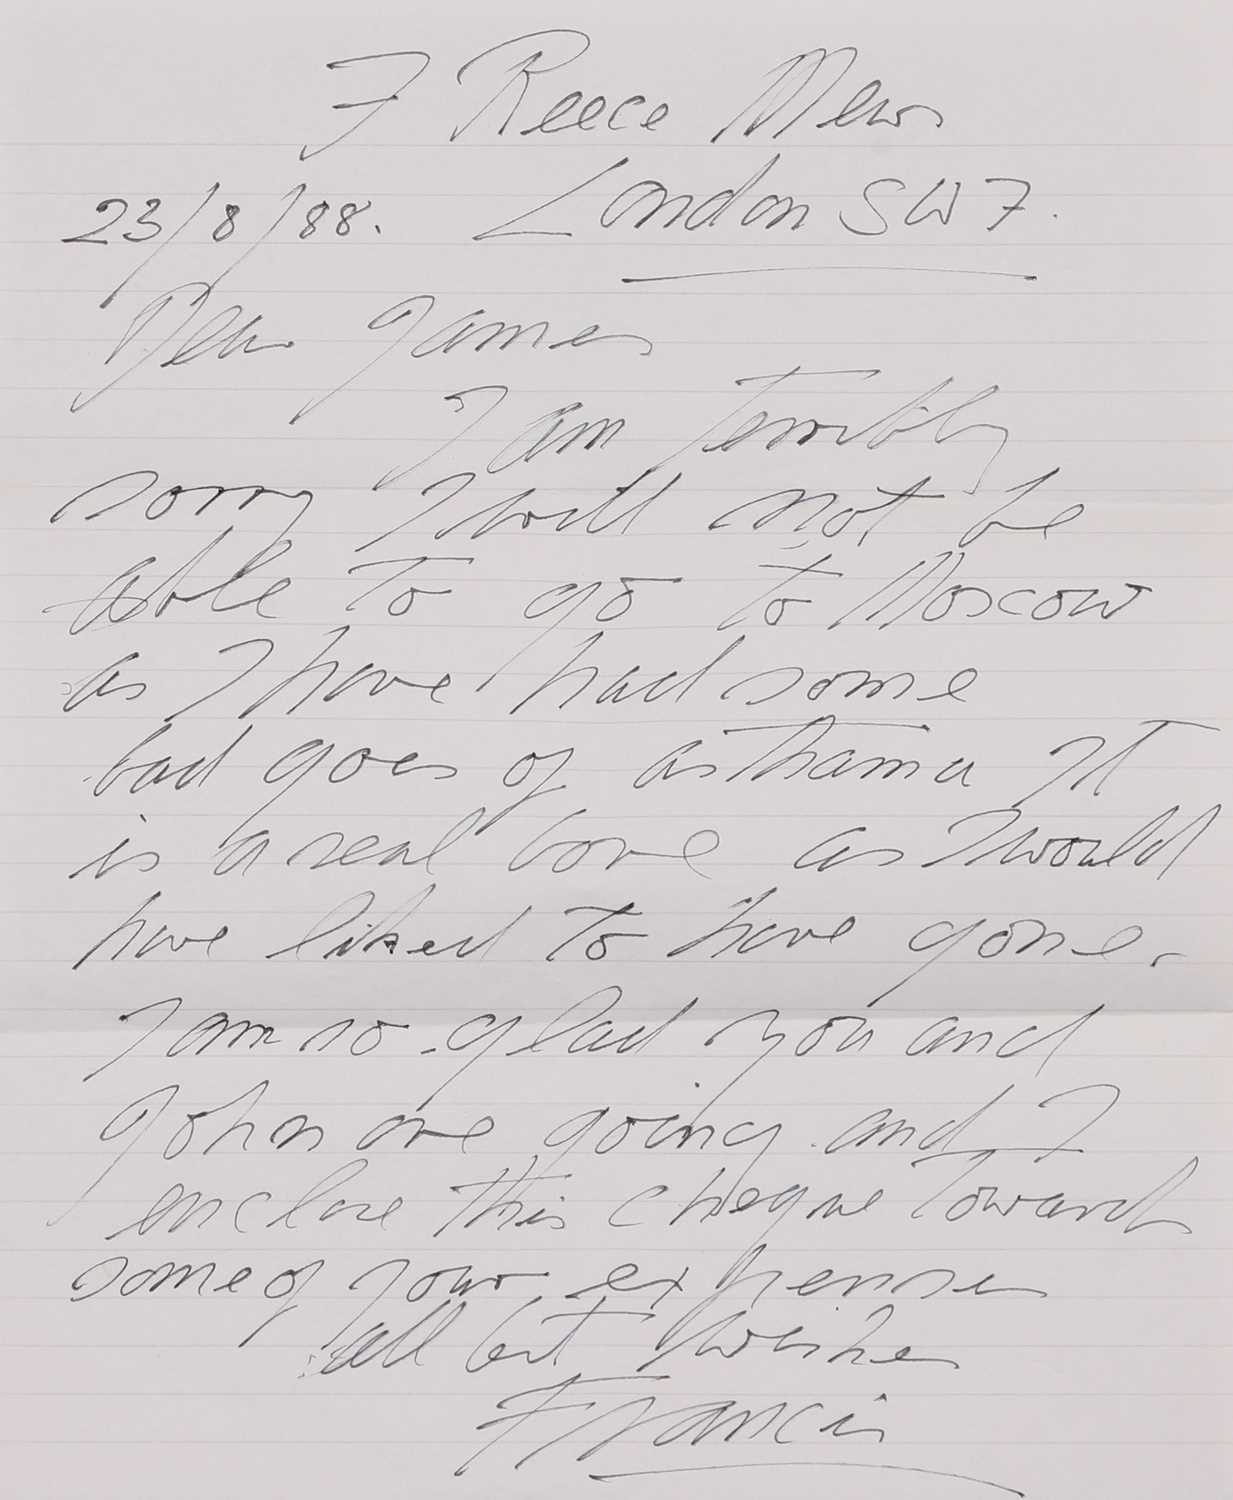 7 Reece Mews
23/8/88. London SW7.
Dear James
I am terribly
sorry I will not be
able to go to Moscow
as I have had some
bad goes of asthama It
is a real bore as I would
have liked to have gone.
I am so glad you and
John are going and I
enclose this cheque towards
some of your expenses
all best wishes
Francis